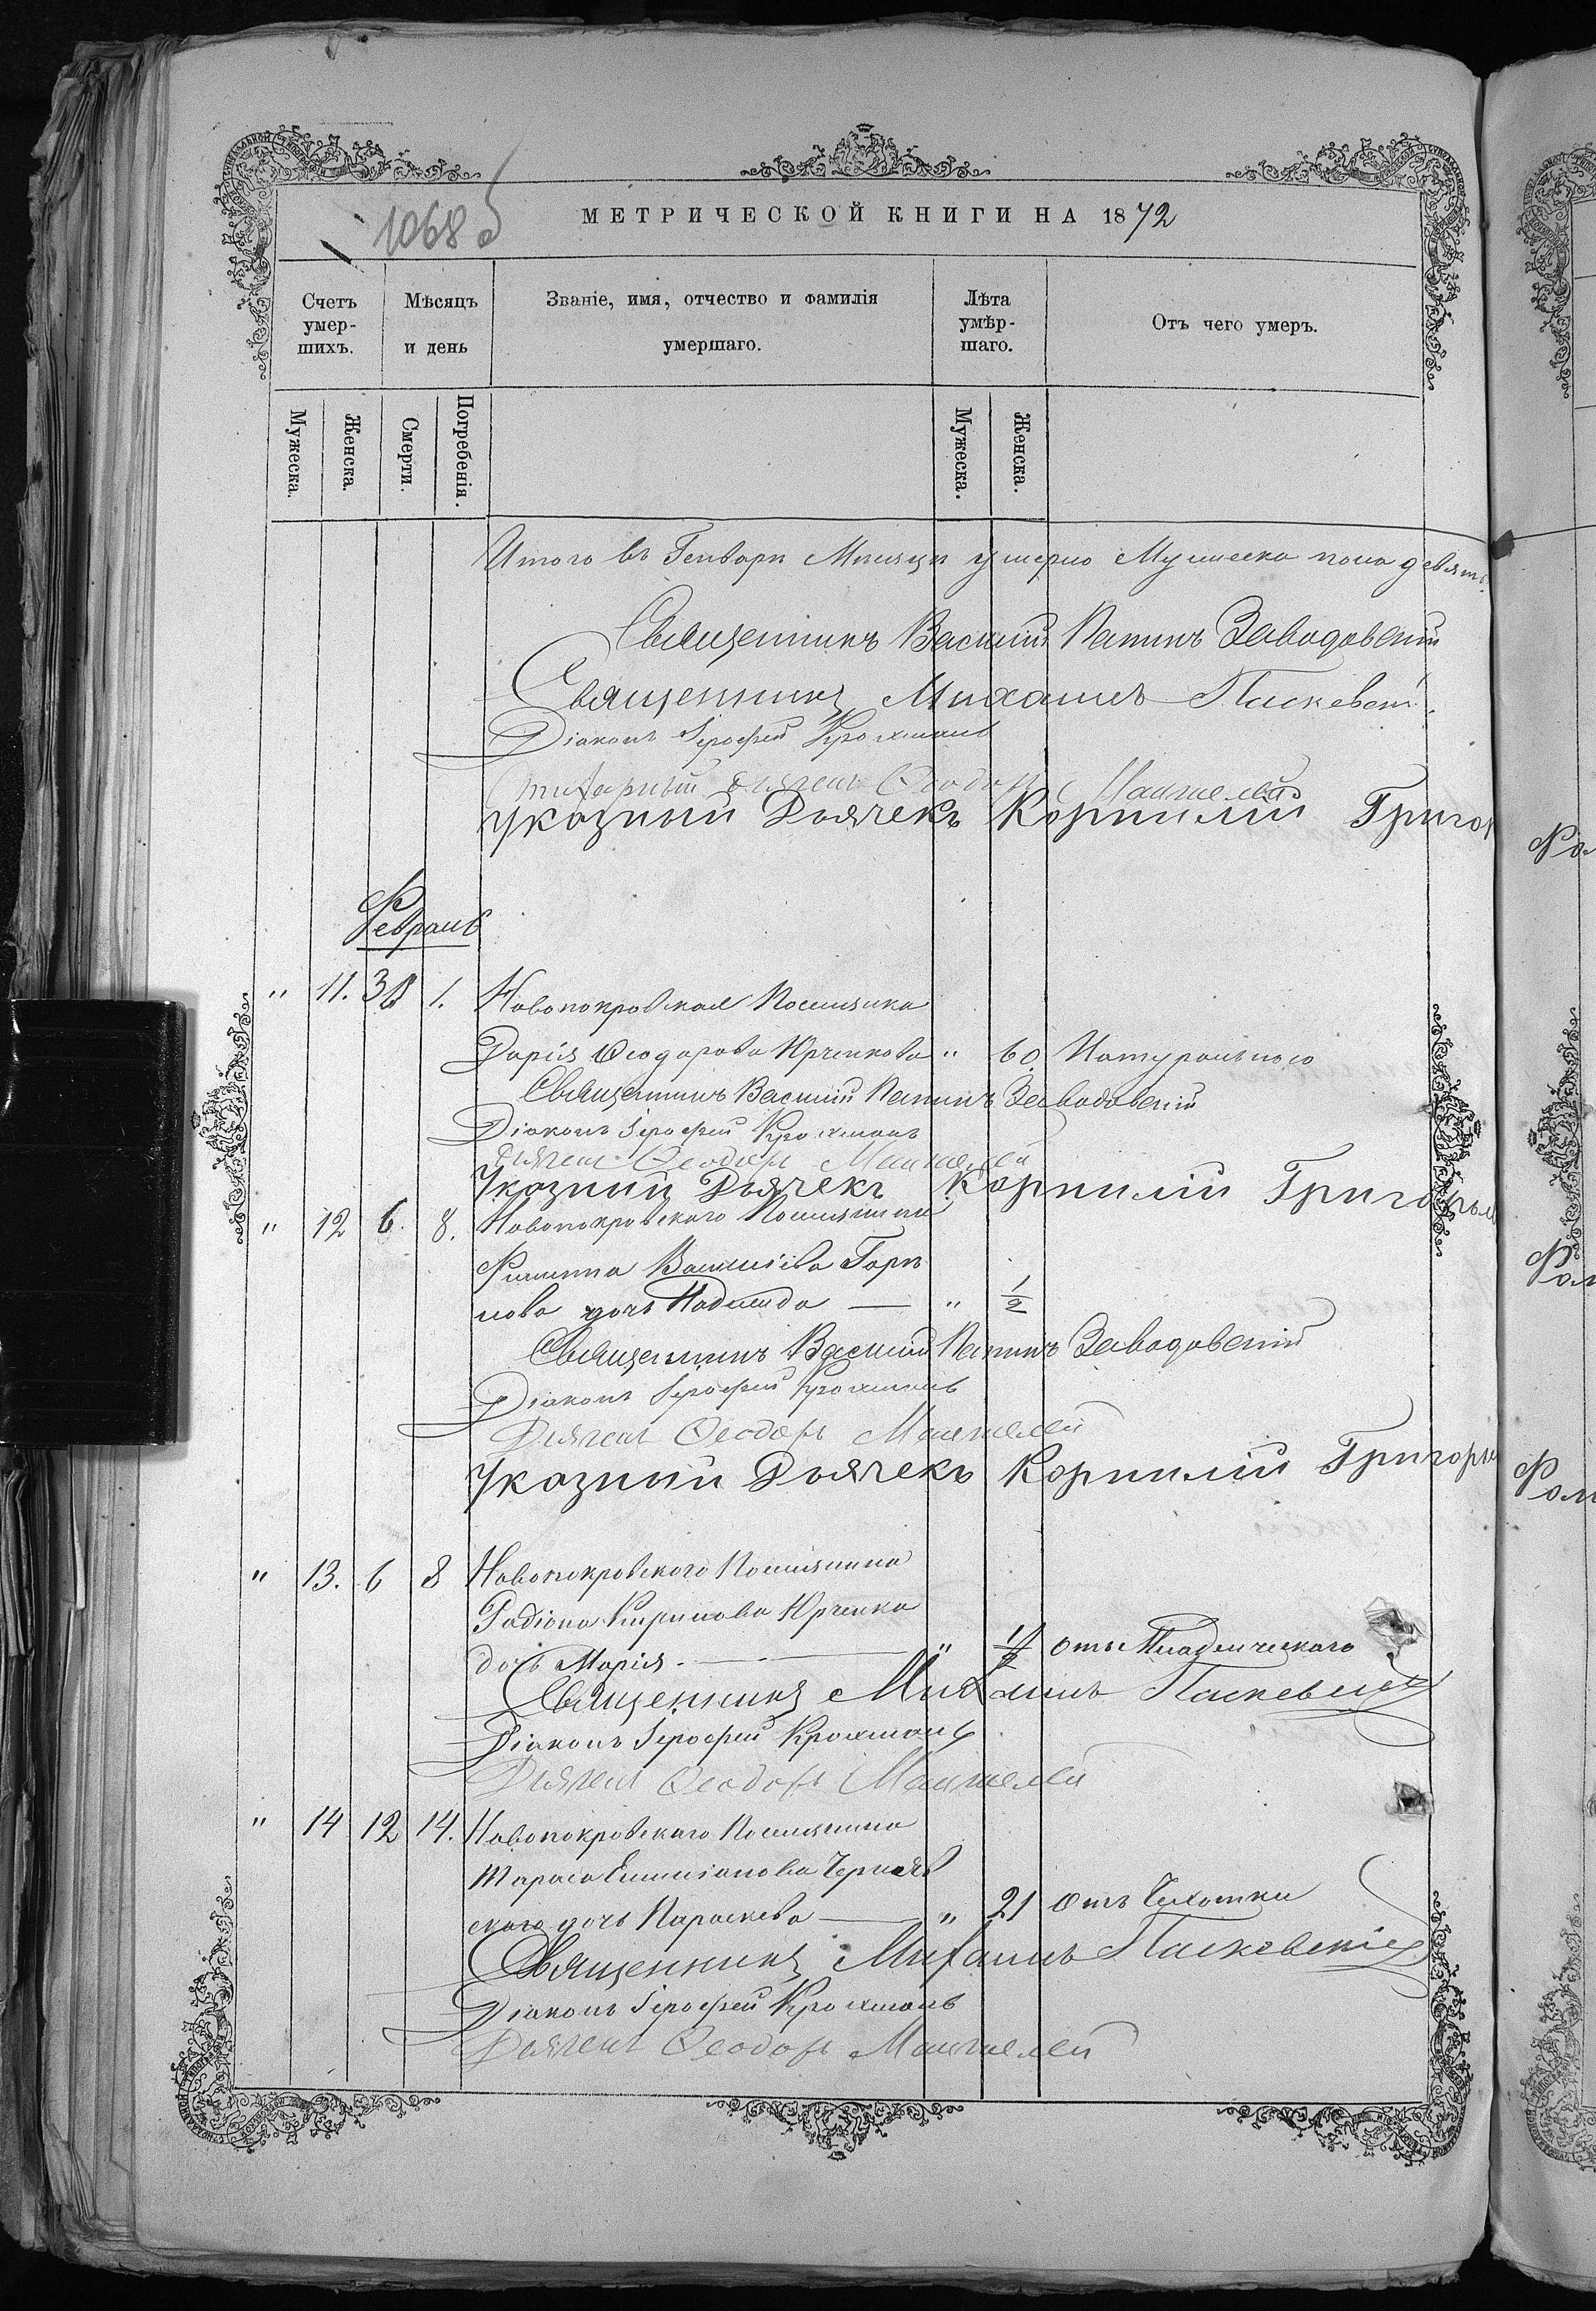 1068 б
МЕТРИЧЕСКОЙ КНИГИ НА 1872
Счетъ умер-шихъ.
Мѣсяцъ и день
Званіе, имя, отчество и фамилія умершаго.
Лѣта умѣр-шаго.
Отъ чего умеръ.
Мужеска.
Женска.
Смерти.
Погребенія.
Мужеска.
Женска.
Итого въ Генварѣ Мѣсяцѣ умерло Мужеска пола девять
Священникъ Василій Заводовскій
Священникъ Михаилъ
Діаконъ Іерофей Крохмаль
дьячекъ Ѳеодоръ
Указный Дьячекъ Корнилій Григор
Февраль
" 11. 1. Новопокровская Поселянка
Дарія Ѳеодорова Юрченкова " 60. Натурально
Священникъ Василій Заводовскій
Діаконъ Іерофей Крохмаль
Дьячекъ Ѳеодоръ
Указный Дьячекъ Корнилій Григорьев
" 12 6. 8. Новопокровского Поселянина
Филиппа Василіева Горѣ
лова дочь Надежда — " 1/2
Священникъ Василій Заводовскій
Діаконъ Іерофей Крохмаль
Дьячекъ Ѳеодоръ
Указный Дьячекъ Корнилій Григорьев
" 13. 6 8 Новопокровского Поселянина
Радіона Кирилова Юрченка
дочь Марія — " Отъ Младенческаго
Священникъ Михаилъ
Діаконъ Іерофей Крохмаль
Дьячекъ Ѳеодоръ
" 14 12 14. Новопокровскаго Поселянина
Тараса Емиліанова Черняв
скаго дочь Параскева — " 21 Отъ Чахотки
Священникъ Михаилъ
Діаконъ Іерофей Крохмаль
Дьячекъ Ѳеодоръ